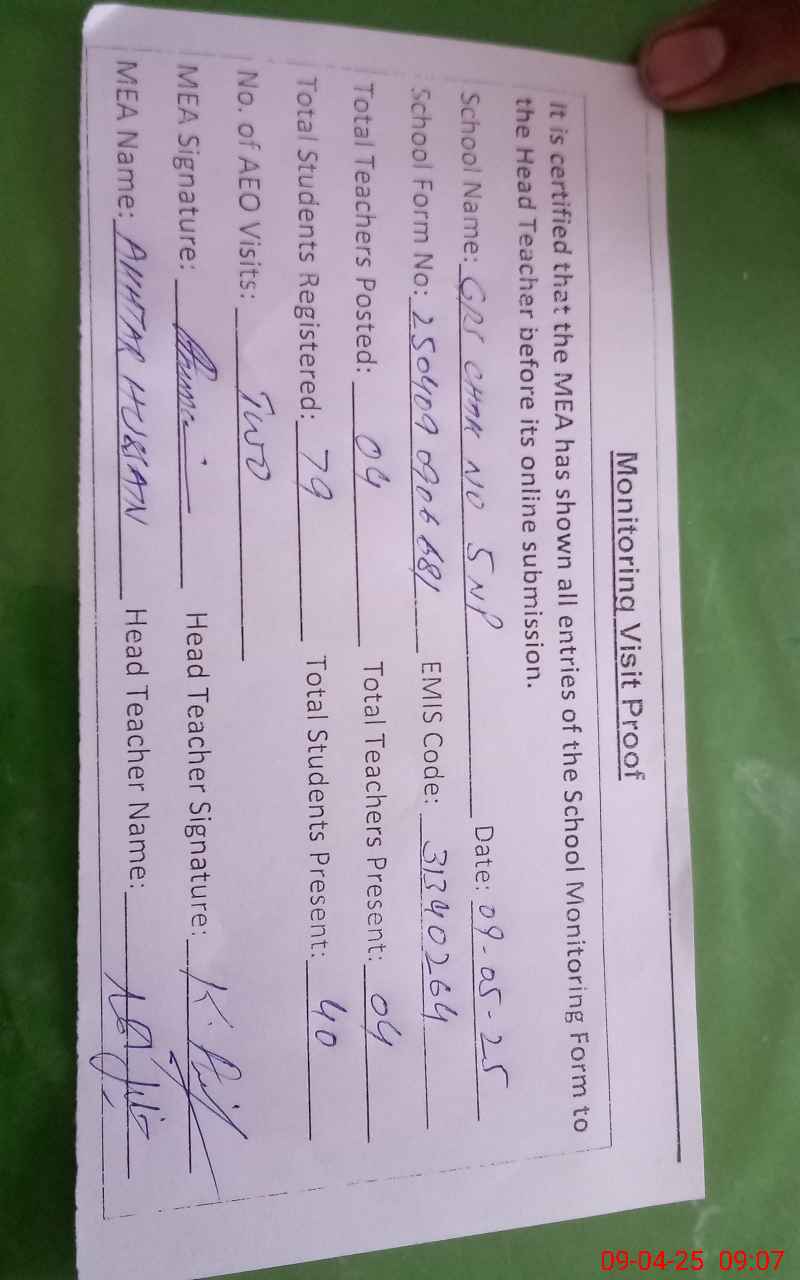 Monitoring Visit Proof
It is certified that the MEA has shown all entries of the School Monitoring Form to
the Head Teacher before its online submission.
School Name: GPS CHAK NO 5 NP Date: 09-05-25
School Form No: 250409 0906 681 EMIS Code: 31340264
Total Teachers Posted: 04 Total Teachers Present: 04
Total Students Registered: 79 Total Students Present: 40
No. of AEO Visits: TWO
MEA Signature: Head Teacher Signature:
MEA Name: AKHTAR HUSSAIN Head Teacher Name:
09-04-25 09:07